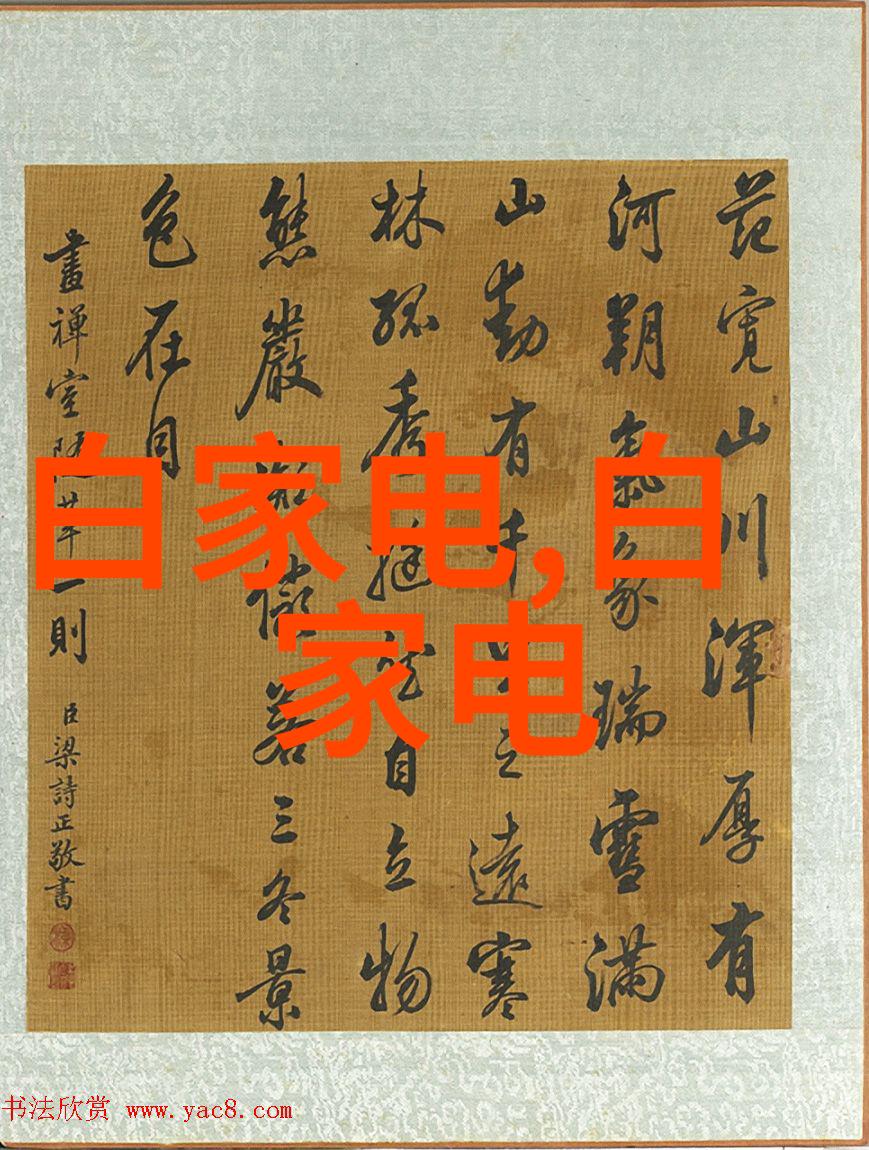 范寬山川渾厚有
河朔氣象瑞雪滿
山動有千里之遠寒
林孤秀挺然自立物
態嚴凝儼若三冬景
色在目
畫禪室隨筆一則
臣梁詩正敬書
白家电,白
家电
书法欣赏 www.yac8.com